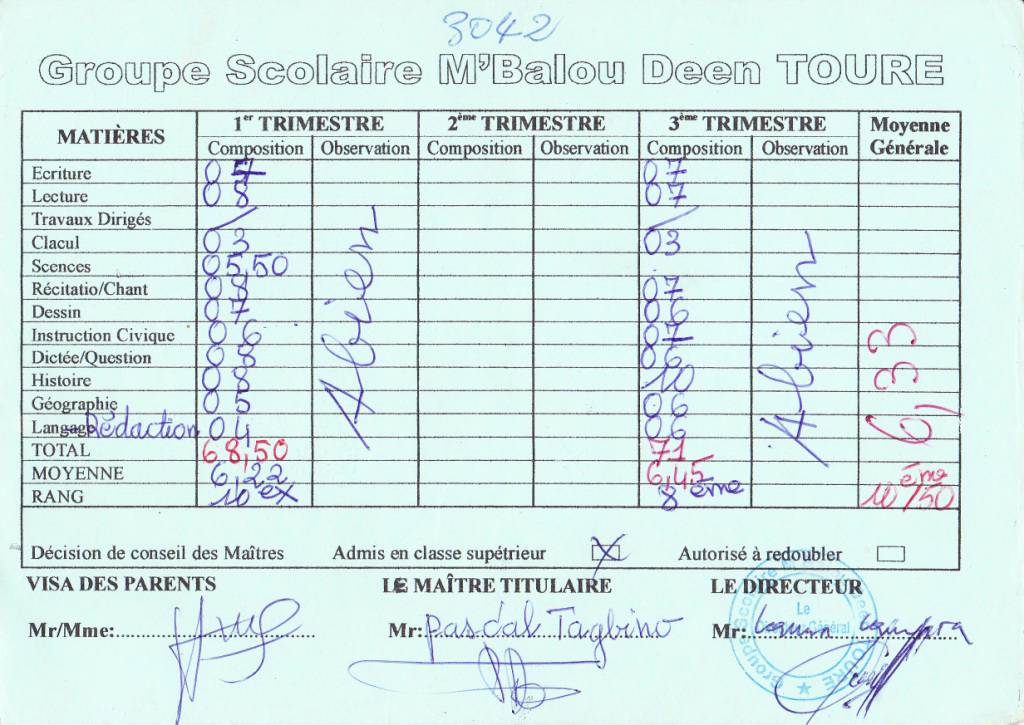 3042
Groupe Scolaire M'Balou Deen TOURE
MATIÈRES 1er TRIMESTRE 2ème TRIMESTRE 3ème TRIMESTRE Moyenne Générale
Composition Observation Composition Observation Composition Observation
Ecriture 07 07
Lecture 08 07
Travaux Dirigés / /
Clacul 03 03
Scences 05,50
Récitatio/Chant 08 07
Dessin 07 06
Instruction Civique 06 07
Dictée/Question 08 06
Histoire 08 10
Géographie 05 06
Langage Rédaction 04 06
TOTAL 68,50 71
MOYENNE 6,22 6,45
RANG 10 ex 8 ème
A.bien
A.bien
6,33
10ème/50
Décision de conseil des Maîtres Admis en classe supétrieur X Autorisé à redoubler
VISA DES PARENTS LE MAÎTRE TITULAIRE LE DIRECTEUR
Mr/Mme: Mr: Pascal Tagbino Mr:
Le
Général
Groupe Scolaire
TOURE